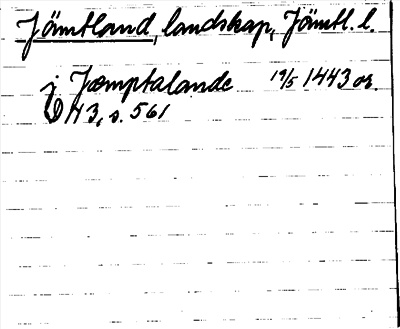 Jämtland, landskap, Jämtl. l.
j Jæmptalande 19/5 1443 or.
H 3, s. 561